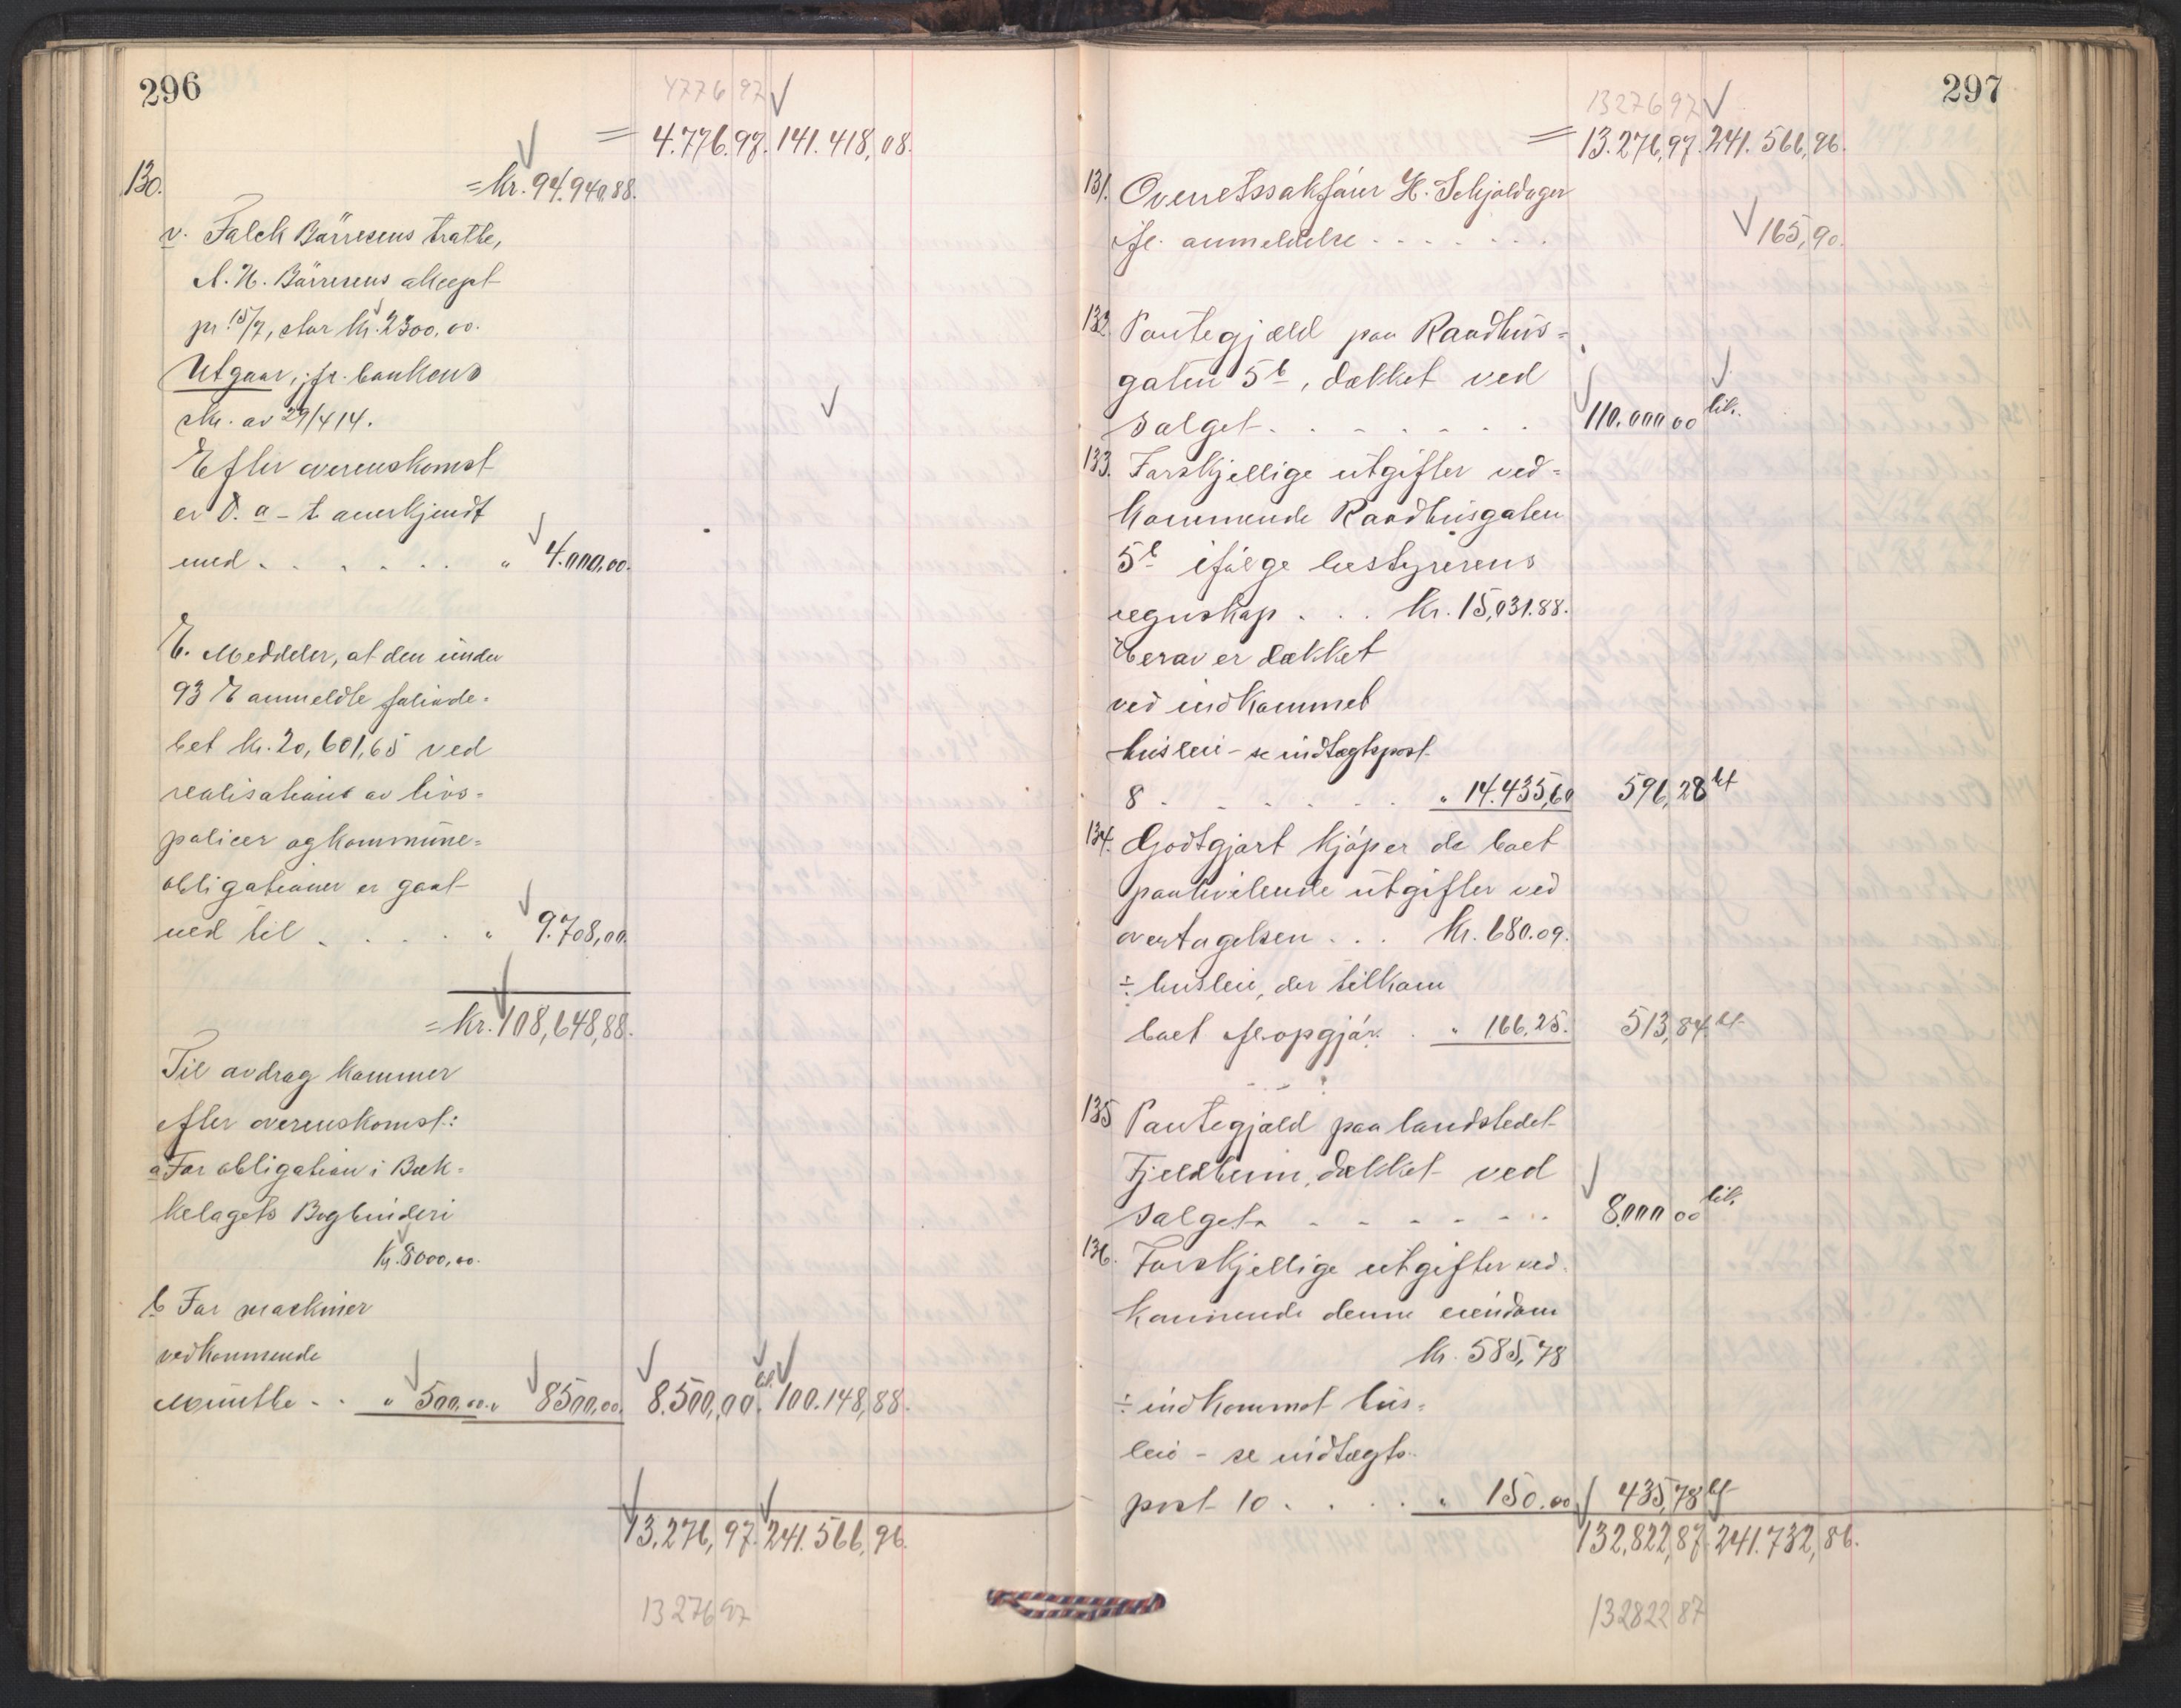 296
4776 97
= 4.776.97. 141.418,08.
130. = kr. 94.940,88.
v. Falck Börresens tratte,
N. Börresens aksept
pr. 15/7, stor kr. 2300,00.
Utgaar, jfr. bankens
skr. av 29/4 14.
Efter overenskomst
er d. a - t anerkjendt
med . . . . . " 4.000,00.
E. Meddeler, at den under
93 E anmeldte fordring
kr. 20,601,65 ved
realisation av livs-
policer og kommune-
obligationer er gaat
ned til . . . . " 9.708,00.
= kr. 108,648,88.
Til avdrag kommer
efter overenskomst:
a For obligation i Bæk-
kelagets Bogbinderi
kr. 8000,00.
b For maskiner
vedkommende
Münthe . . " 500,00. " 8500,00. 8.500,00. lik. 100.148,88.
13,276,97. 241.566,96.
13 276 97
297
13276 97
= 13.276,97. 241.566,96.
131. Overretssakförer H. Schjoldager
ifl. anmeldelse . . . . . . . 165,90.
132. Pantegjæld paa Raadhus-
gaten 5b, dækket ved
salget . . . . . . . 110.000 00 lik.
133. Forskjellige utgifter ved-
kommende Raadhusgaten
5b ifölge bestyrerens
regnskap . . . kr. 15,031.88.
Herav er dækket
ved indkommet
husleie - se indtægtspost
8 . . . . . . " 14.435,60 596,28 ut
134. Godtgjort kjöper de boet
paahvilende utgifter ved
overtagelsen . . . kr. 680.09.
÷ husleie, der tilkom
boet ifl. opgjör . " 166,25. 513,84. ut
135 Pantegjæld paa landstedet
Fjeldheim, dækket ved
salget . . . . . . . 8.000 00 lik.
136. Forskjellige utgifter ved-
kommende denne eiendom
kr. 585,78
÷ indkommet hus-
leie - se indtægts-
post 10 . . . . " 150.00 435,78 ut
132,822,87. 241.732,86.
132822 87